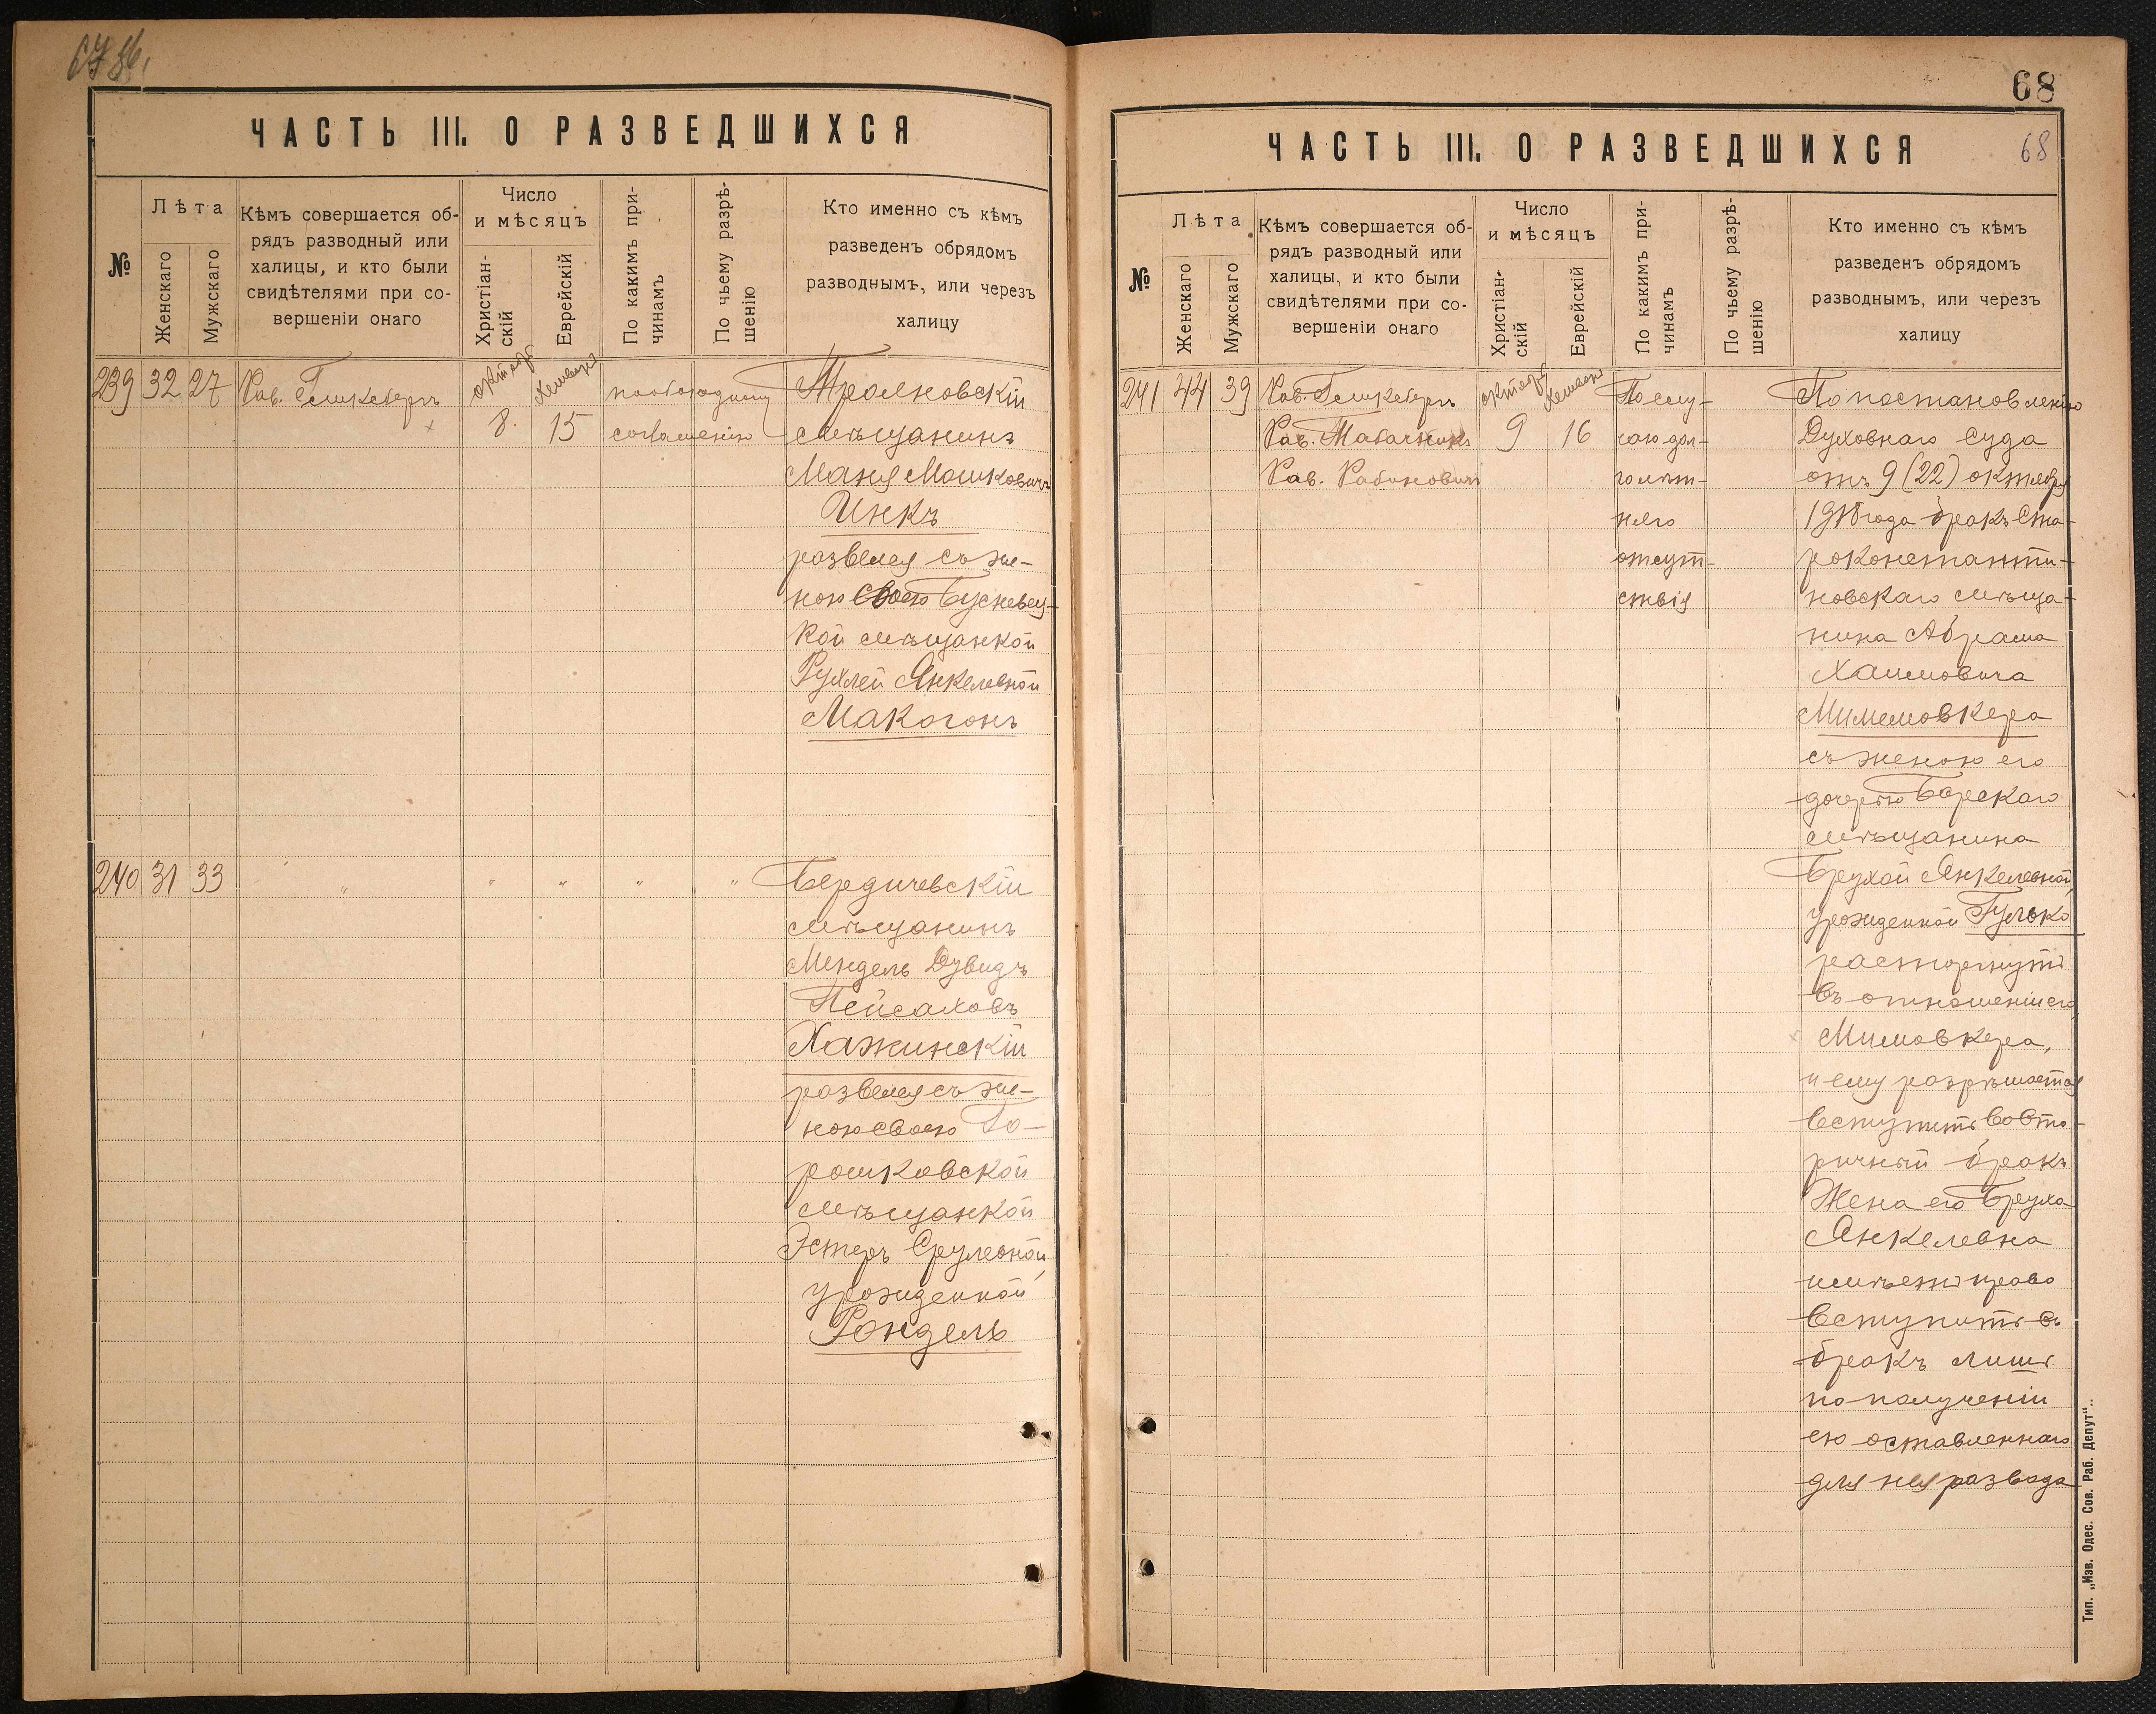 ЧАСТЬ III. О РАЗВЕДШИХСЯ
№
Лѣта
Женскаго
Мужскаго
Кѣмъ совершается об-
рядъ разводный или
халицы, и кто были
свидѣтелями при со-
вершеніи онаго
Число
и мѣсяцъ
Христіан-
скій
Еврейскій
По какимъ при-
чинамъ
По чьему разрѣ-
шенію
Кто именно съ кѣмъ
разведенъ обрядомъ
разводнымъ, или черезъ
халицу
239 32 27 Рав.
8. 15
по обоюдному
согласению
мѣщанинъ
Маня Мошковичъ
Инкъ
развелся съ же-
ною
кой мѣщанкой
Рухлей Янкелевной
Макогонъ
240 31 33 " " " " "
Бердичевскій
мѣщанинъ
Мендель Дувидъ
Пейсаховъ
Хажинскій
развелся съ же-
ною своею Го-
рошковской
мѣщанкой
Эстеръ Срулевной,
урожденной
Рондель
68
ЧАСТЬ III. О РАЗВЕДШИХСЯ
68
№
Лѣта
Женскаго
Мужскаго
Кѣмъ совершается об-
рядъ разводный или
халицы, и кто были
свидѣтелями при со-
вершеніи онаго
Число
и мѣсяцъ
Христіан-
скій
Еврейскій
По какимъ при-
чинамъ
По чьему разрѣ-
шенію
Кто именно съ кѣмъ
разведенъ обрядомъ
разводнымъ, или черезъ
халицу
241 44 39 Рав.
Рав. Табачникъ
Рав. Рабиновичъ
9 16
По слу-
чаю дол-
голѣт-
няго
отсут-
ствія
По постановленію
Духовнаго Суда
отъ 9 (22) октября
1918 года бракъ Ста-
роконстанти-
новскаго мѣща-
нина Абрама
Хаимовича
съ женою его
дочерью Барскаго
мѣщанина
Брухой Янкелевной,
урожденной Гулько
расторгнутъ
въ отношеніи его,
Мимовкера,
и ему разрѣшается
вступить во вто-
ричный бракъ
Жена его Бруха
Янкелевна
имѣетъ право
вступить въ
бракъ лишь
по полученіи
ею оставленнаго
для нея развода
Тип. „Изв. Одес. Сов. Раб. Депут“.